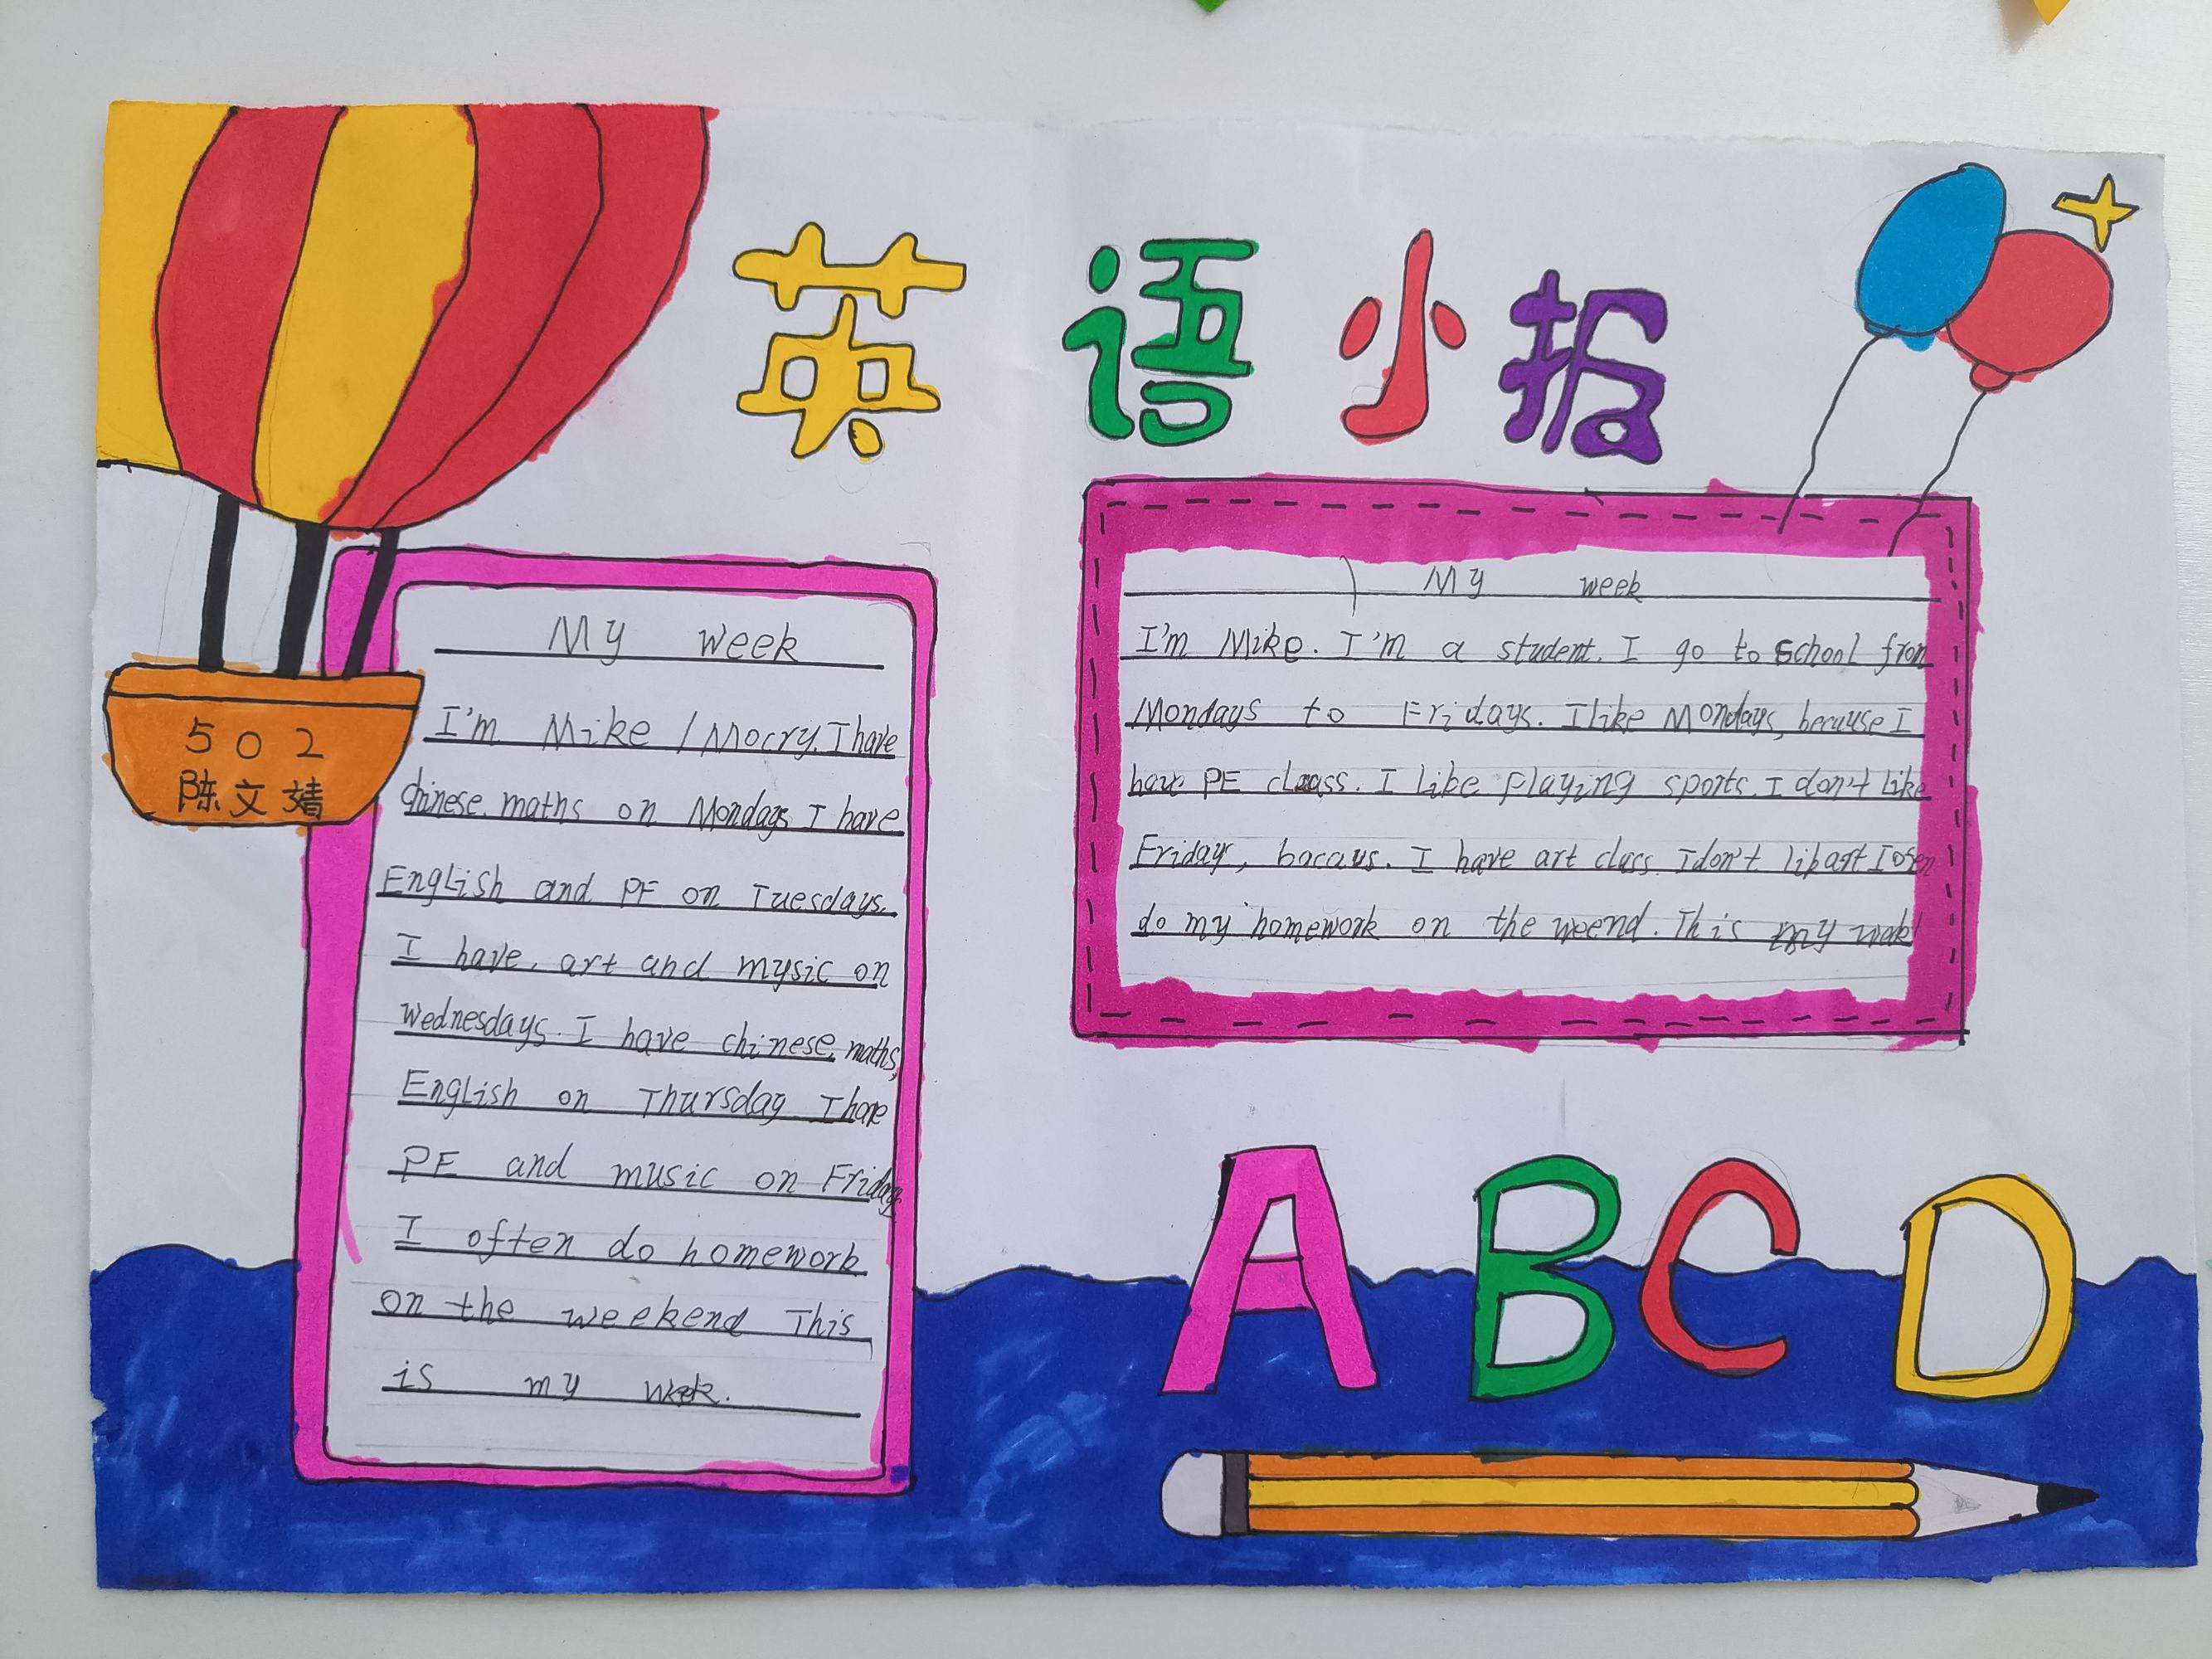 英语小报
502
陈文婧
My week
I'm Mike / Mocry. I have
chinese. maths on Mondays I have
English and PE on Tuesdays.
I have. art and mysic on
wednesdays. I have chinese, maths,
English on Thursday I have
PE and music on Friday
I often do homework
on the weekend This
is my week.
My week
I'm Mike. I'm a student. I go to school from
Mondays to Fridays. I like Mondays, because I
have PE class. I like playing sports. I don't like
Friday, bacaus. I have art class. I don't lik art I
do my homework on the weend. This my week
ABCD